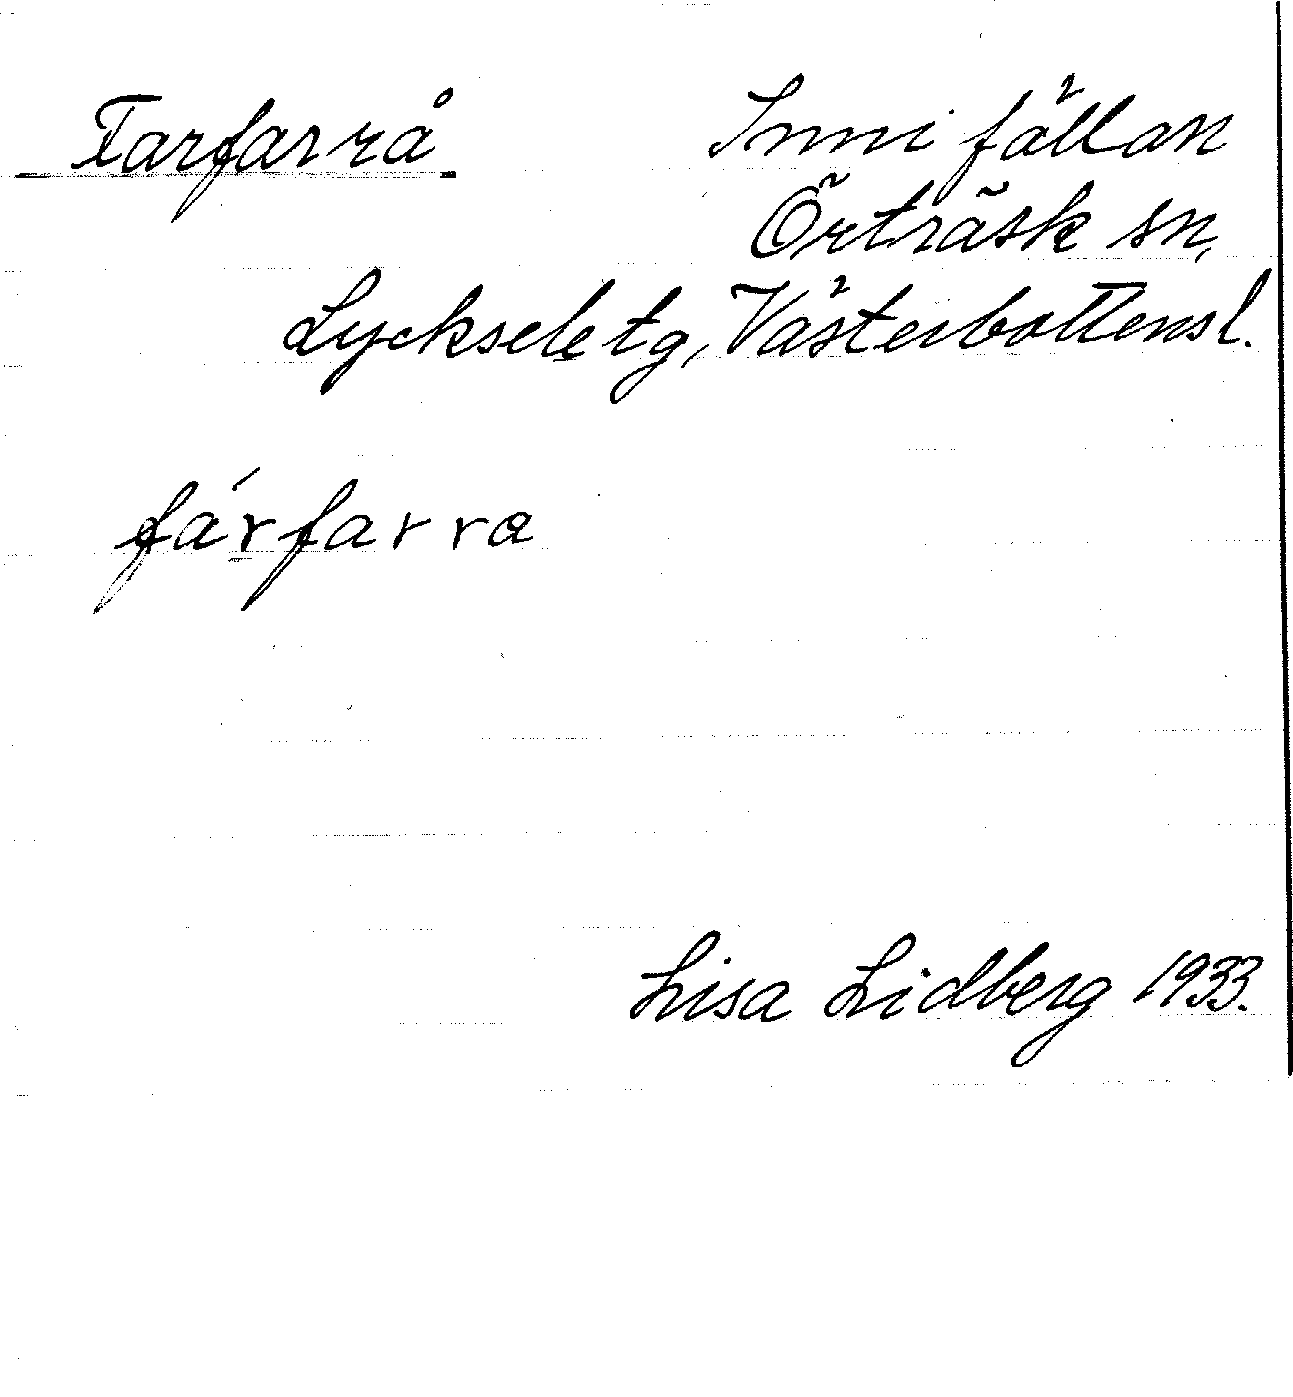 Farfarrå
Inni fällan
Örträsk sn,
Lycksele tg, Västerbottensl.
fárfarra
Lisa Lidberg 1933.